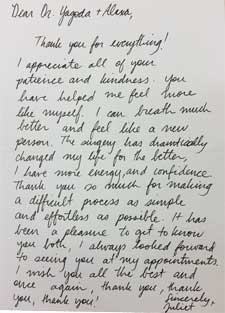 Dear Dr. Yagoda + Alexa,
Thank you for everything!
I appreciate all of your
patience and kindness. You
have helped me feel more
like myself. I can breath much
better and feel like a new
person. The surgery has dramatically
changed my life for the better,
I have more energy, and confidence.
Thank you so much for making
a difficult process as simple
and effortless as possible. It has
been a pleasure to get to know
you both, I always looked forward
to seeing you at my appointments.
I wish you all the best and
once again, thank you, thank
you, thank you!
Sincerely,
Juliet